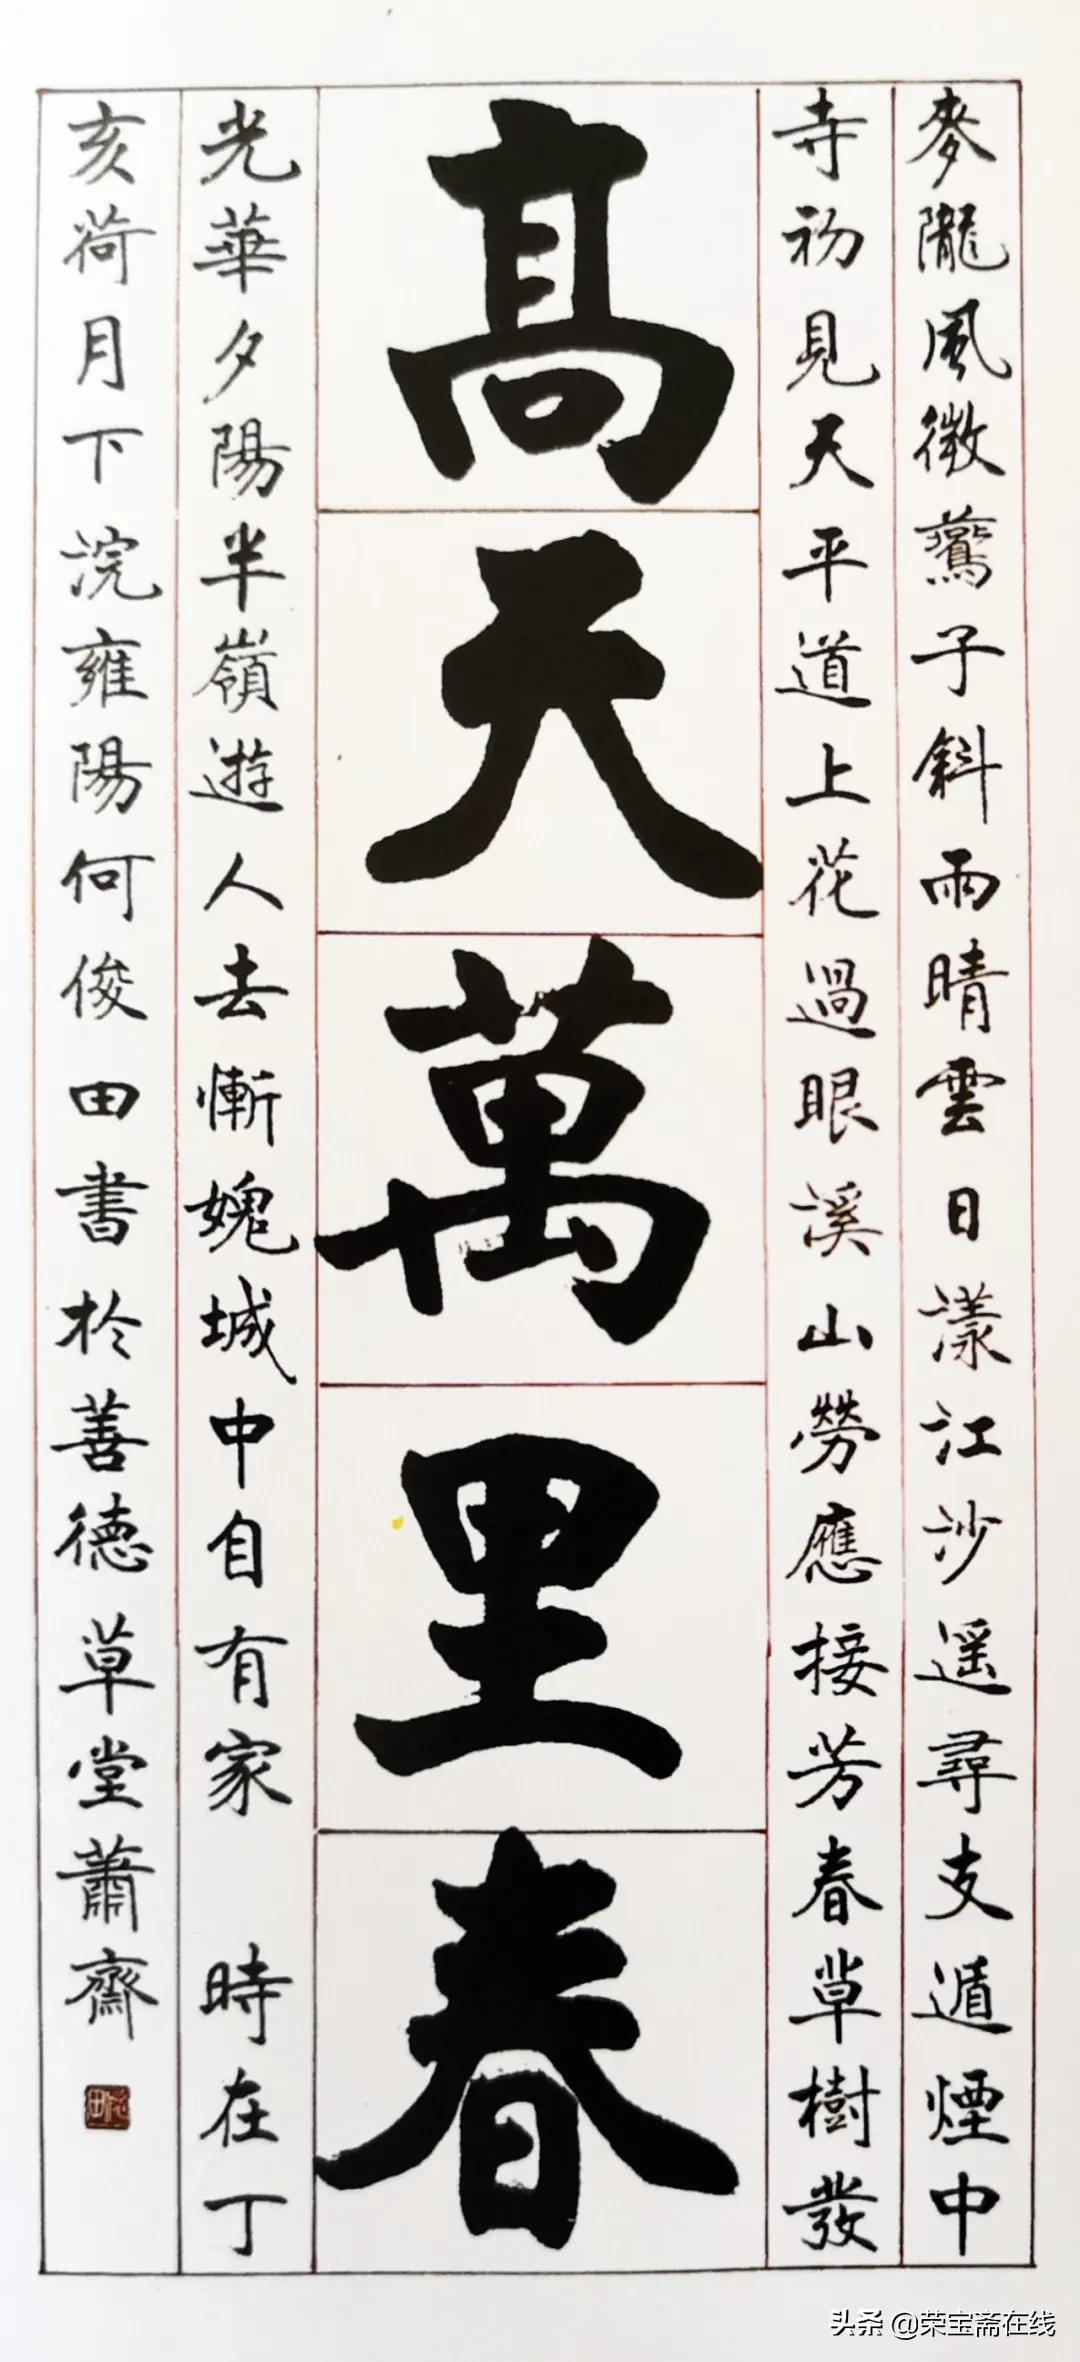 麥隴風微燕子斜雨晴雲日漾江沙遥尋支遁煙中
寺初見天平道上花過眼溪山勞應接芳春草樹發
高天萬里春
光華夕陽半嶺遊人去慚媿城中自有家 時在丁
亥荷月下浣雍陽何俊田書於善德草堂蕭齋
头条 @荣宝斋在线